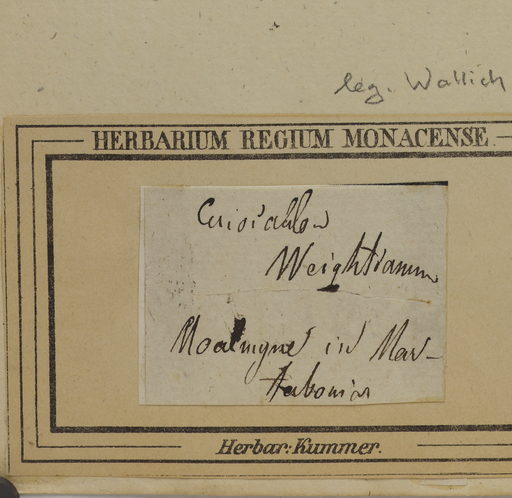 leg. Wallich
HERBARIUM REGIUM MONACENSE
Weightianum
Moalmyne in Mar-
Herbar: Kummer.